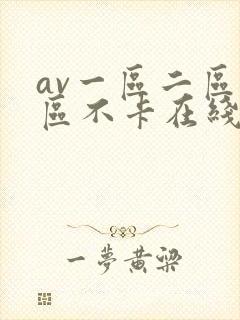 av一區二區
區不卡在綫
一夢黄梁